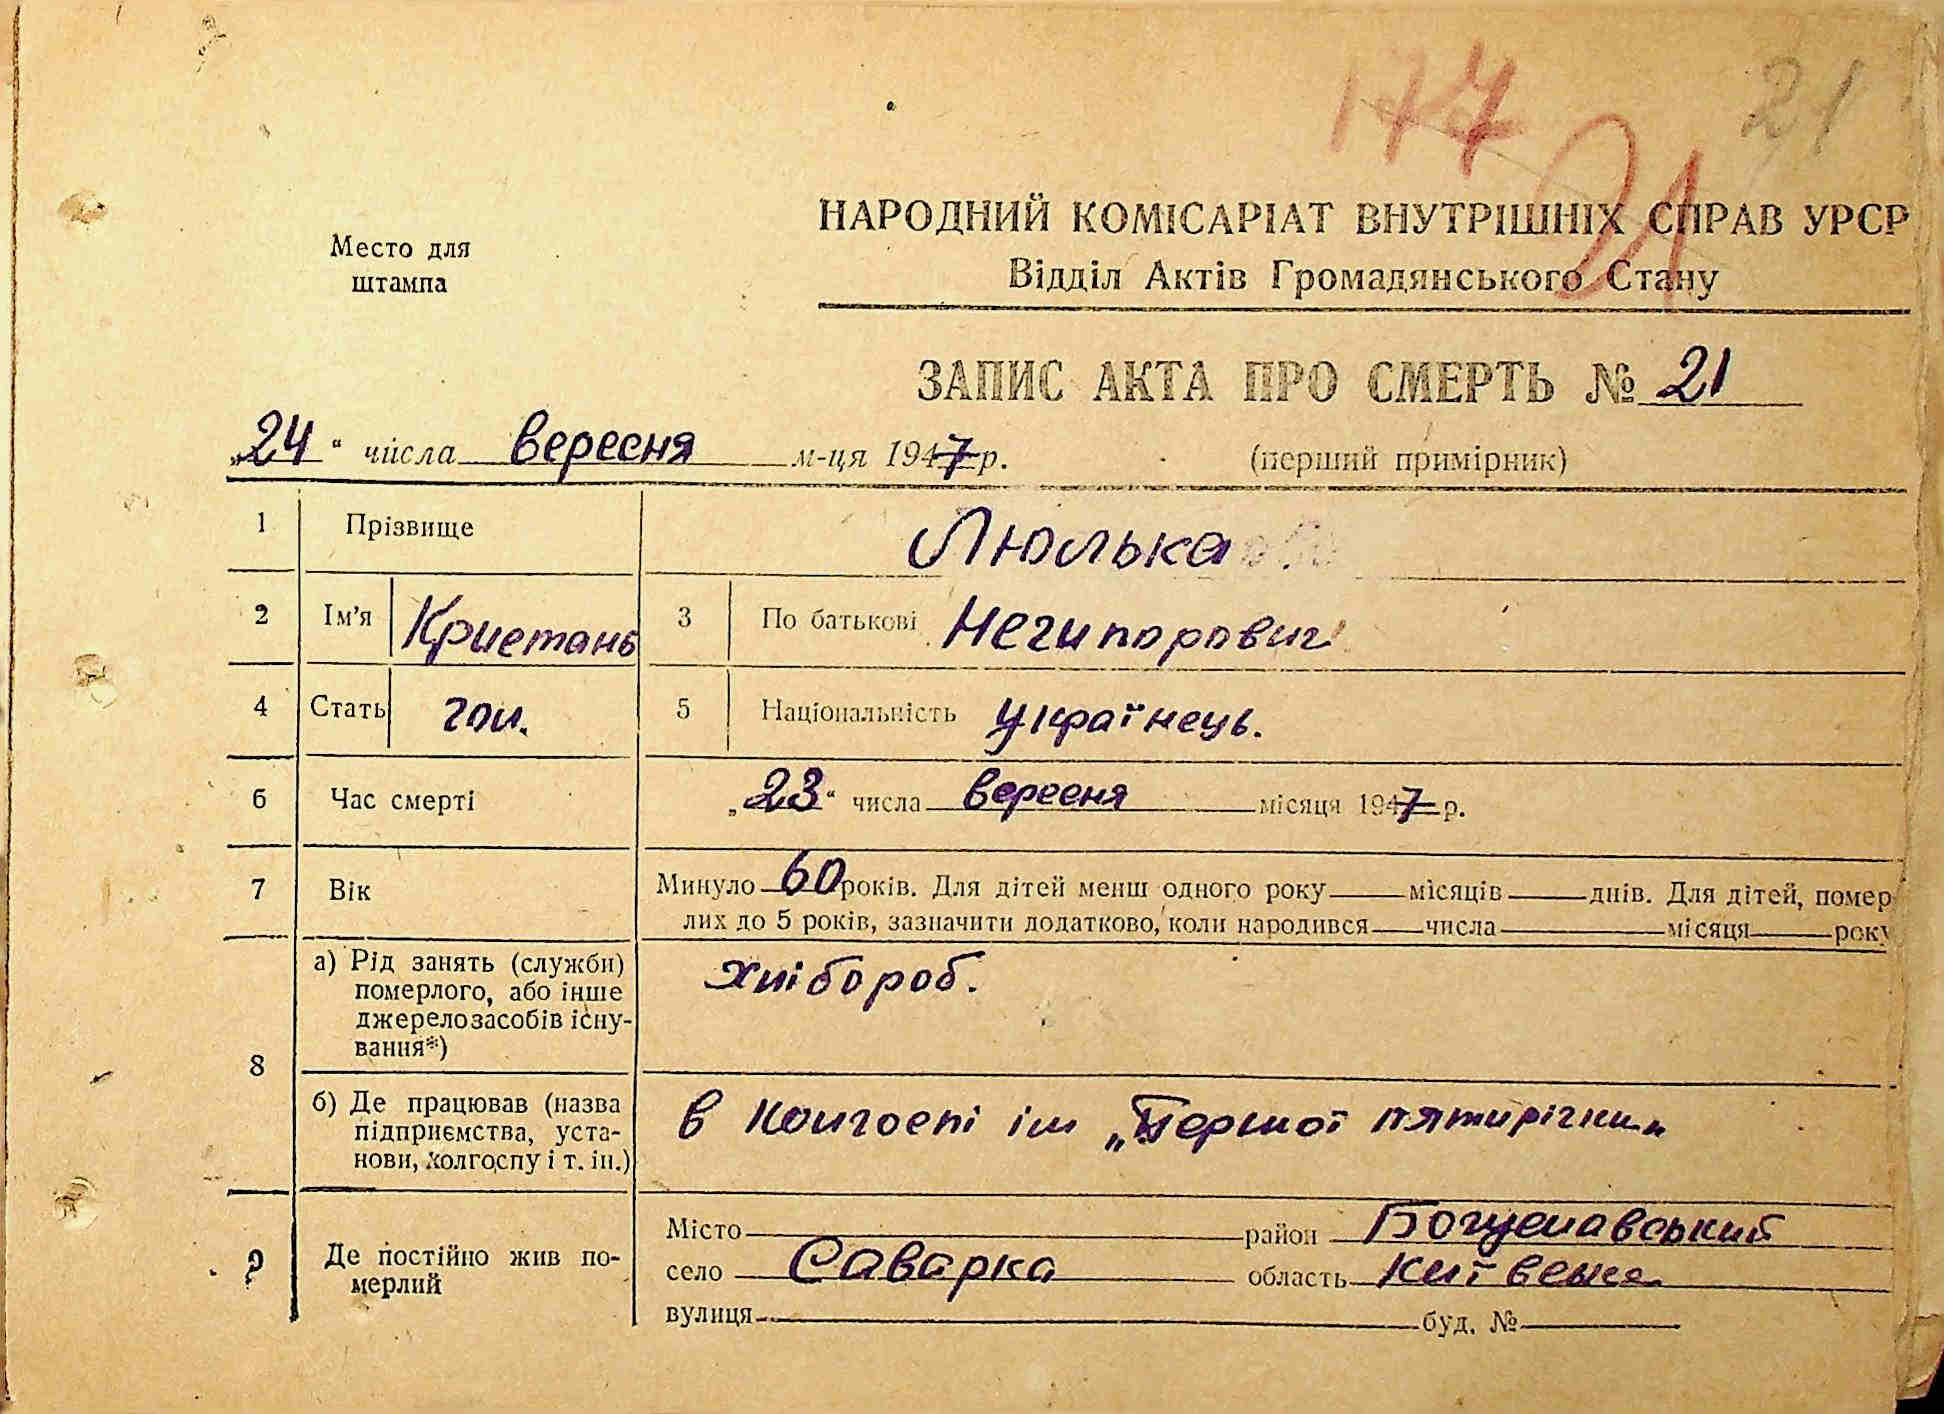 177 21
21
Место для
штампа
НАРОДНИЙ КОМІСАРІАТ ВНУТРІШНІХ СПРАВ УРСР
Відділ Актів Громадянського Стану
ЗАПИС АКТА ПРО СМЕРТЬ № 21
„24“ числа вересня м-ця 1947 р. (перший примірник)
1 Прізвище Люлька
2 Ім’я Кристань 3 По батькові Негипорович
4 Стать чол. 5 Національність українець.
6 Час смерті „23“ числа вересня місяця 1947 р.
7 Вік Минуло 60 років. Для дітей менш одного року місяців днів. Для дітей, помер
лих до 5 років, зазначити додатково, коли народився числа місяця року
8 а) Рід занять (служби)
померлого, або інше
джерело засобів існу-
вання*)
хлібороб.
б) Де працював (назва
підприємства, уста-
нови, колгоспу і т. ін.)
в колгоспі ім „Першої пятирічки„
9 Де постійно жив по-
мерлий
Місто район Богуславський
село Саварка область Київська
вулиця буд. №